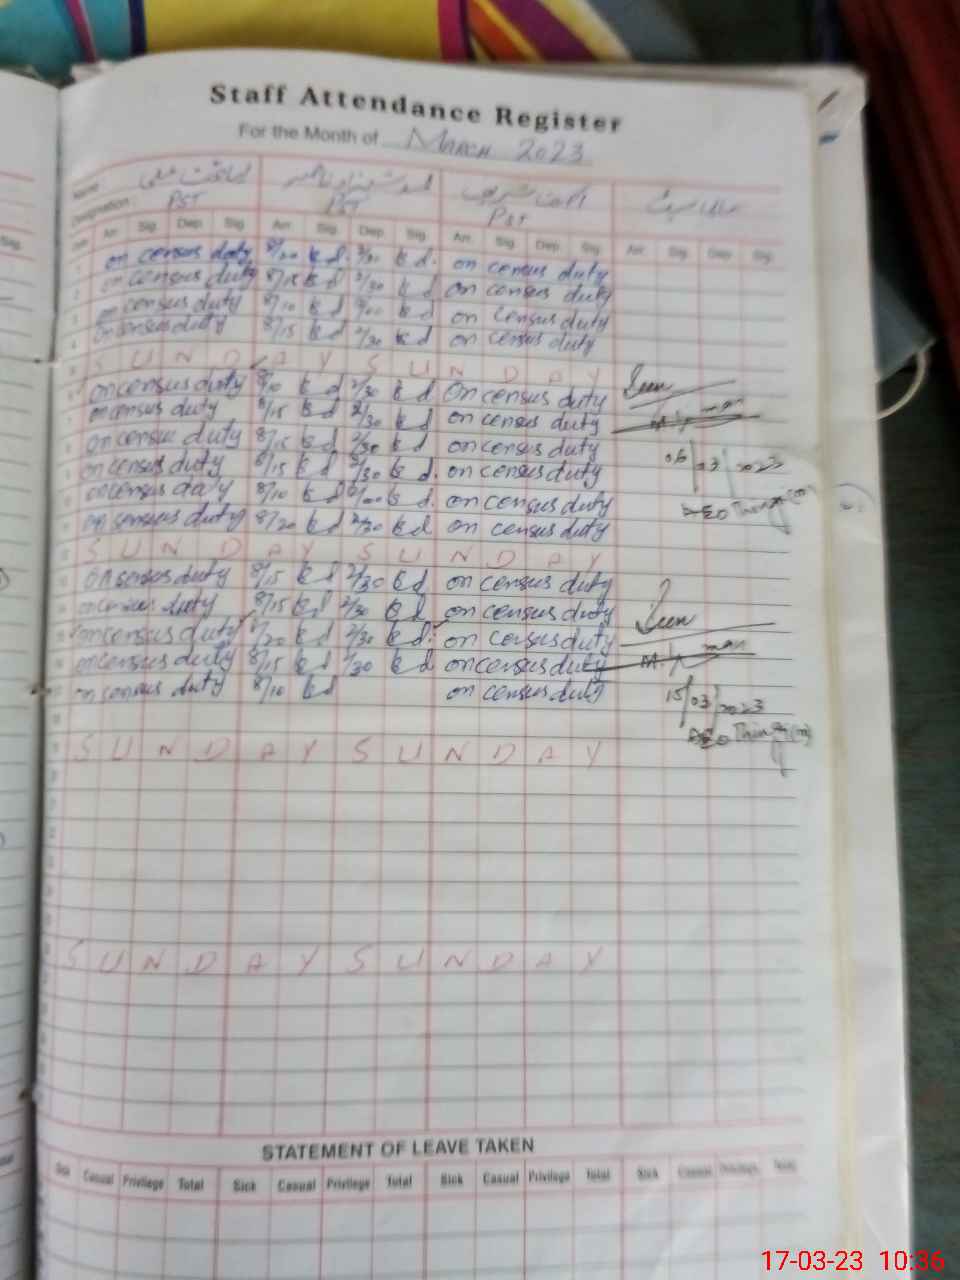 Staff Attendance Register
For the Month of March 2023
Name
Designation: PST PST PST
Arr. Sig. Dep. Sig. Arr. Sig. Dep. Sig. Arr. Sig. Dep. Sig. Arr. Sig. Dep. Sig.
on census duty 8/20 kd. kd. on census duty
on census duty 8/15 kd 2/30 kd on census duty
on census duty 8/10 kd kd on census duty
on census duty 8/15 kd 2/30 kd on census duty
S U N D A Y S U N D A Y
on census duty 8/10 kd 2/30 kd On census duty Seen
on census duty 8/15 kd 2/30 kd on census duty
on census duty 8/15 kd 2/30 kd on census duty
on census duty 8/15 kd 2/30 kd. on census duty 06/03/2023
on census duty 8/10 kd kd. on census duty
on census duty 8/20 kd 2/30 kd on census duty
S U N D A Y S U N D A Y
on census duty 8/15 kd 2/30 kd on census duty
on census duty 8/15 kd 2/30 kd on census duty Seen
on census duty 8/20 kd 2/30 kd. on census duty
on census duty 8/15 kd 2/30 kd on census duty
on census duty 8/10 kd on census duty 15/03/2023
S U N D A Y S U N D A Y
S U N D A Y S U N D A Y
STATEMENT OF LEAVE TAKEN
Sick Casual Privilege Total Sick Casual Privilege Total Sick Casual Privilege Total Sick Casual Privilege Total
17-03-23 10:36